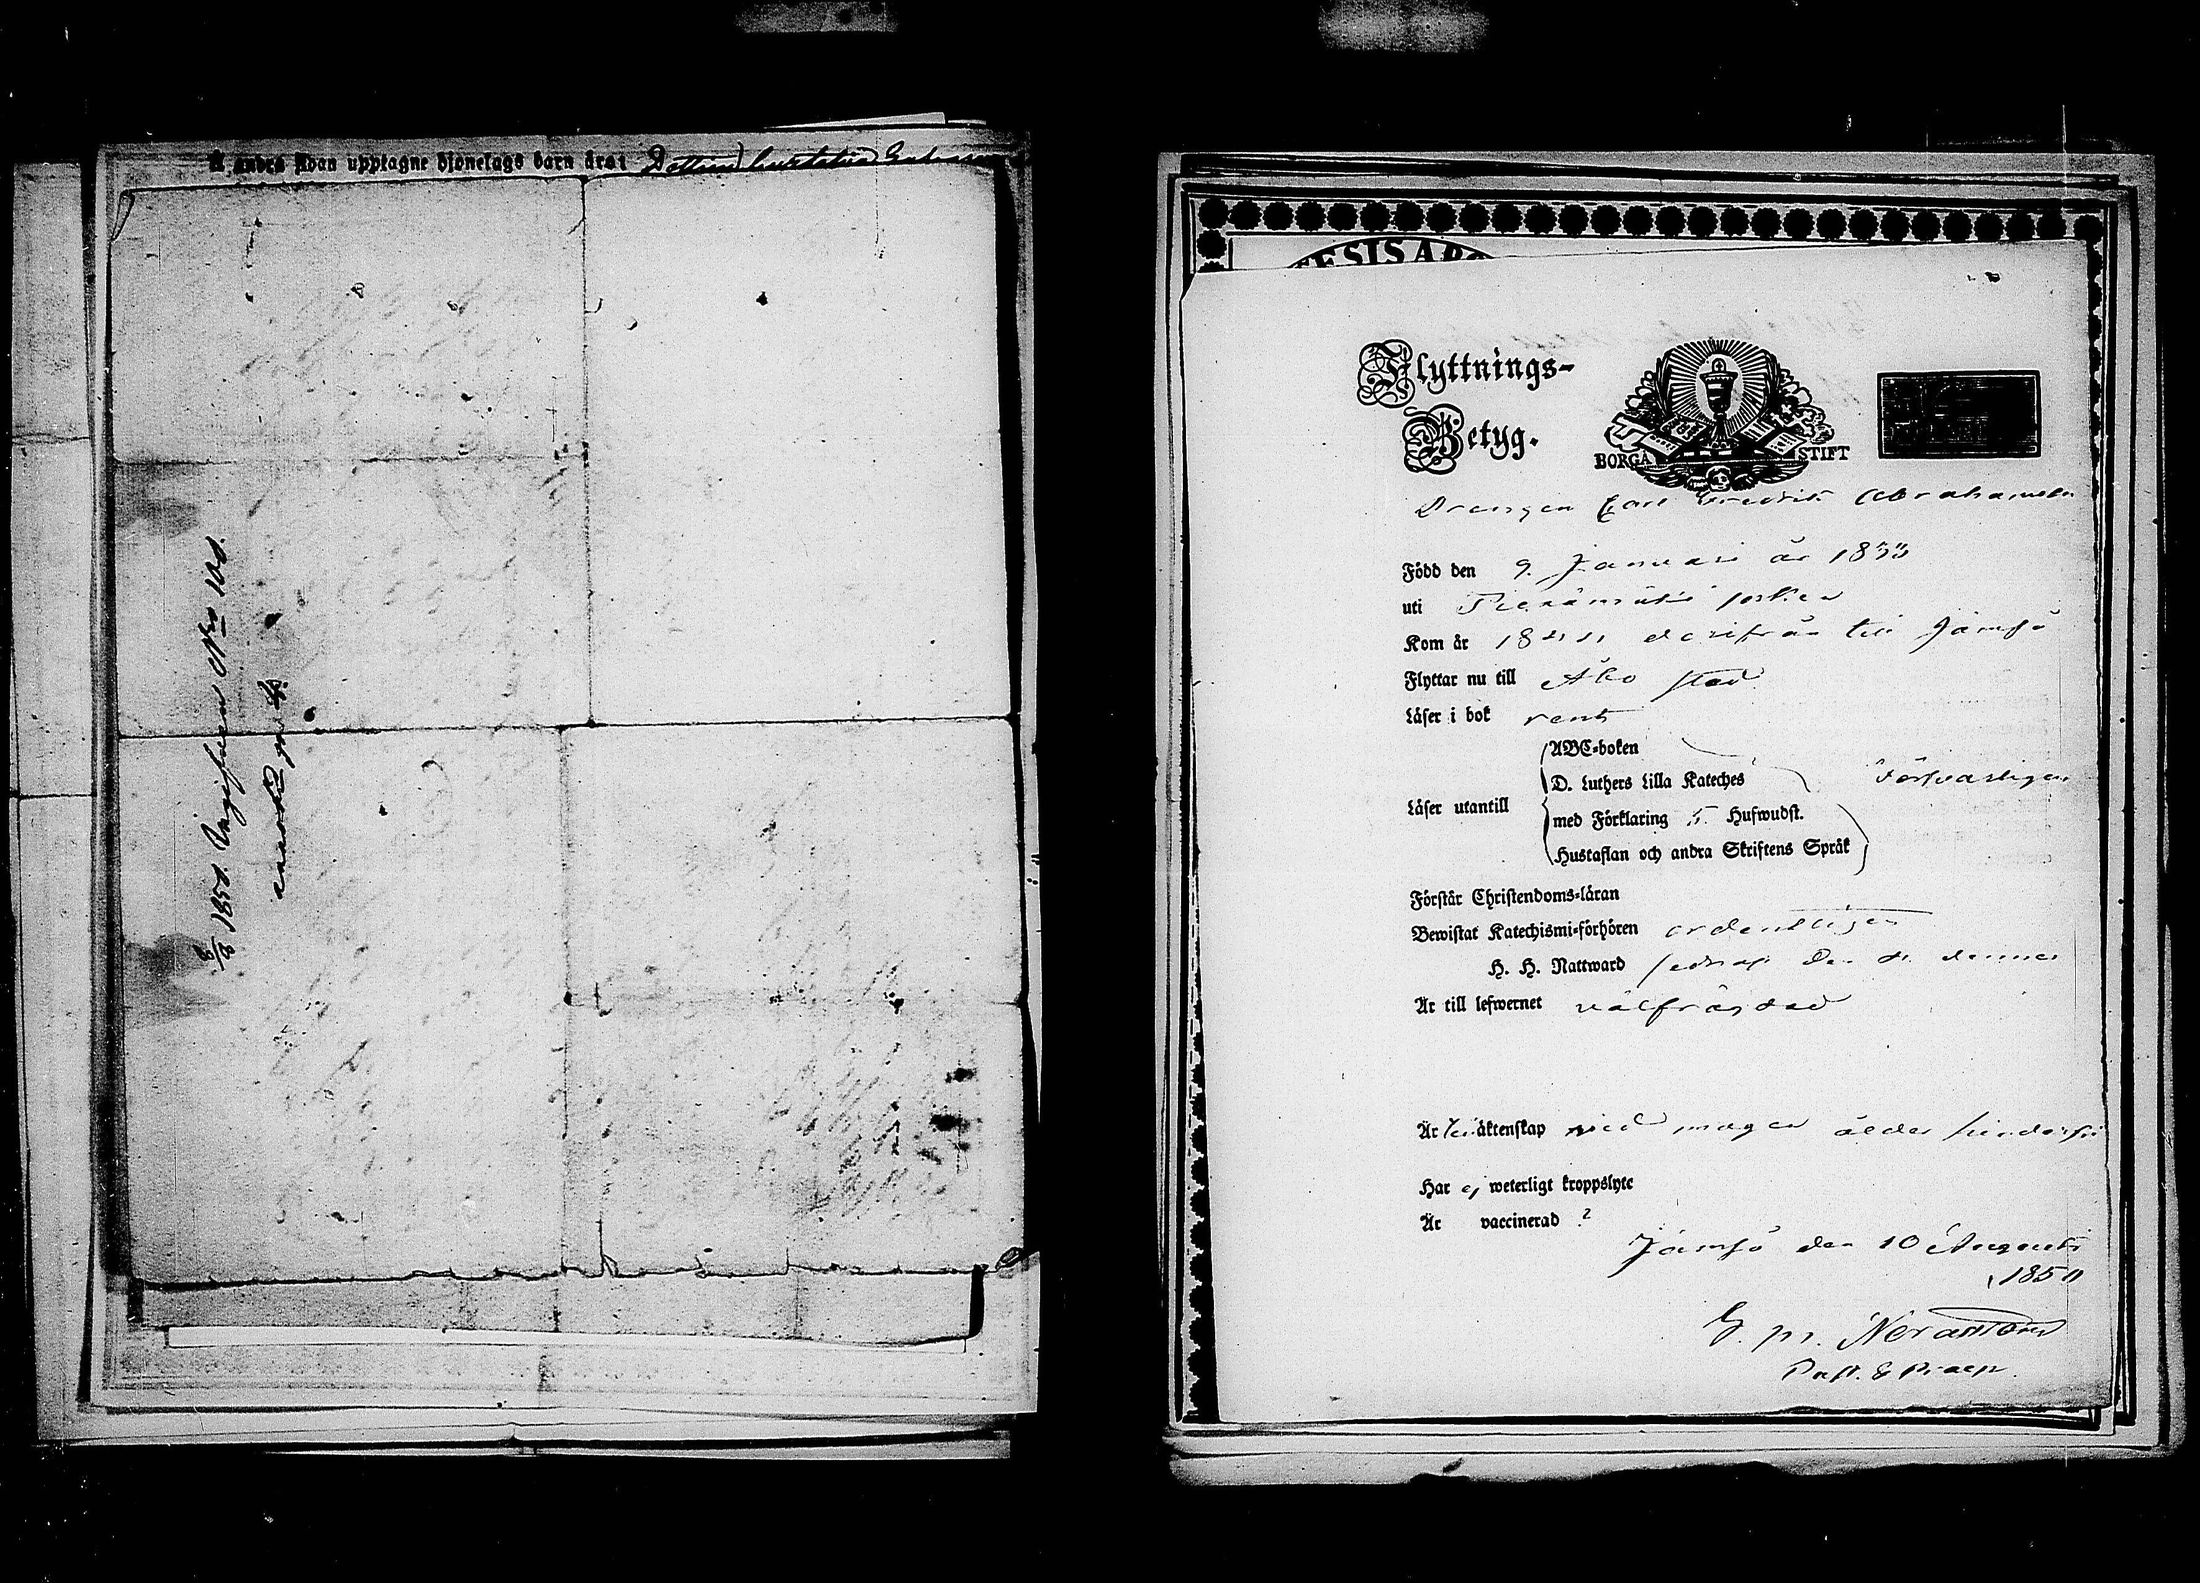 Å andra sidan upptagne hjonelags barn äro:
1850. Ingifven No 100.
TESIS ABO
Flyttnings-
Betyg.
BORGÅ STIFT
Drengen Carl Fredrik Abrahamsson
Född den 9. Januari år 1833
uti socken
Kom år derifrån till Jämsö
Flyttar nu till Åbo stad
Läser i bok rent
Läser utantill
ABC-boken
D. Luthers Lilla Kateches
med Förklaring 5. Hufwudst.
Hustaflan och andra Skriftens Språk
Försvarligen
Förstår Christendoms-läran
Bewistat Katechismi-förhören ordentligen
H. H. Nattward sednast den dennes
Är till lefwernet välfräjdad
Är till äktenskap ålder
Har ej weterligt kroppslyte
Är vaccinerad ?
Jämsö den 10 Augusti
1850
Past. & Praep.